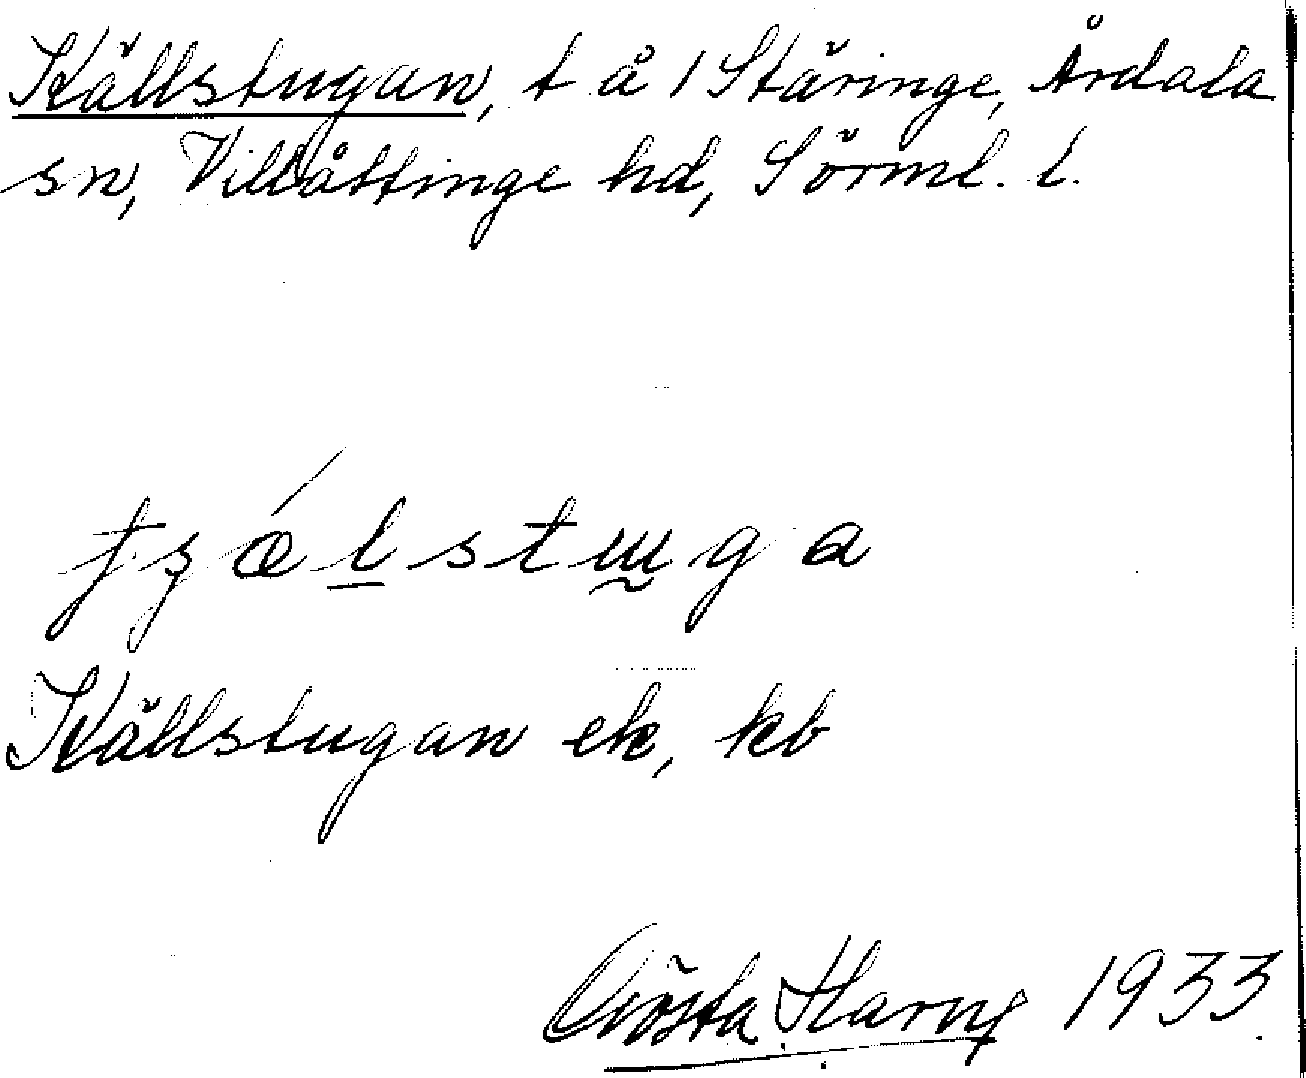 Källstugan, t å 1 Stäringe, Årdala
sn, Villåttinge hd, Sörml. l.
Källstugan ek, kb
Gösta 1933.